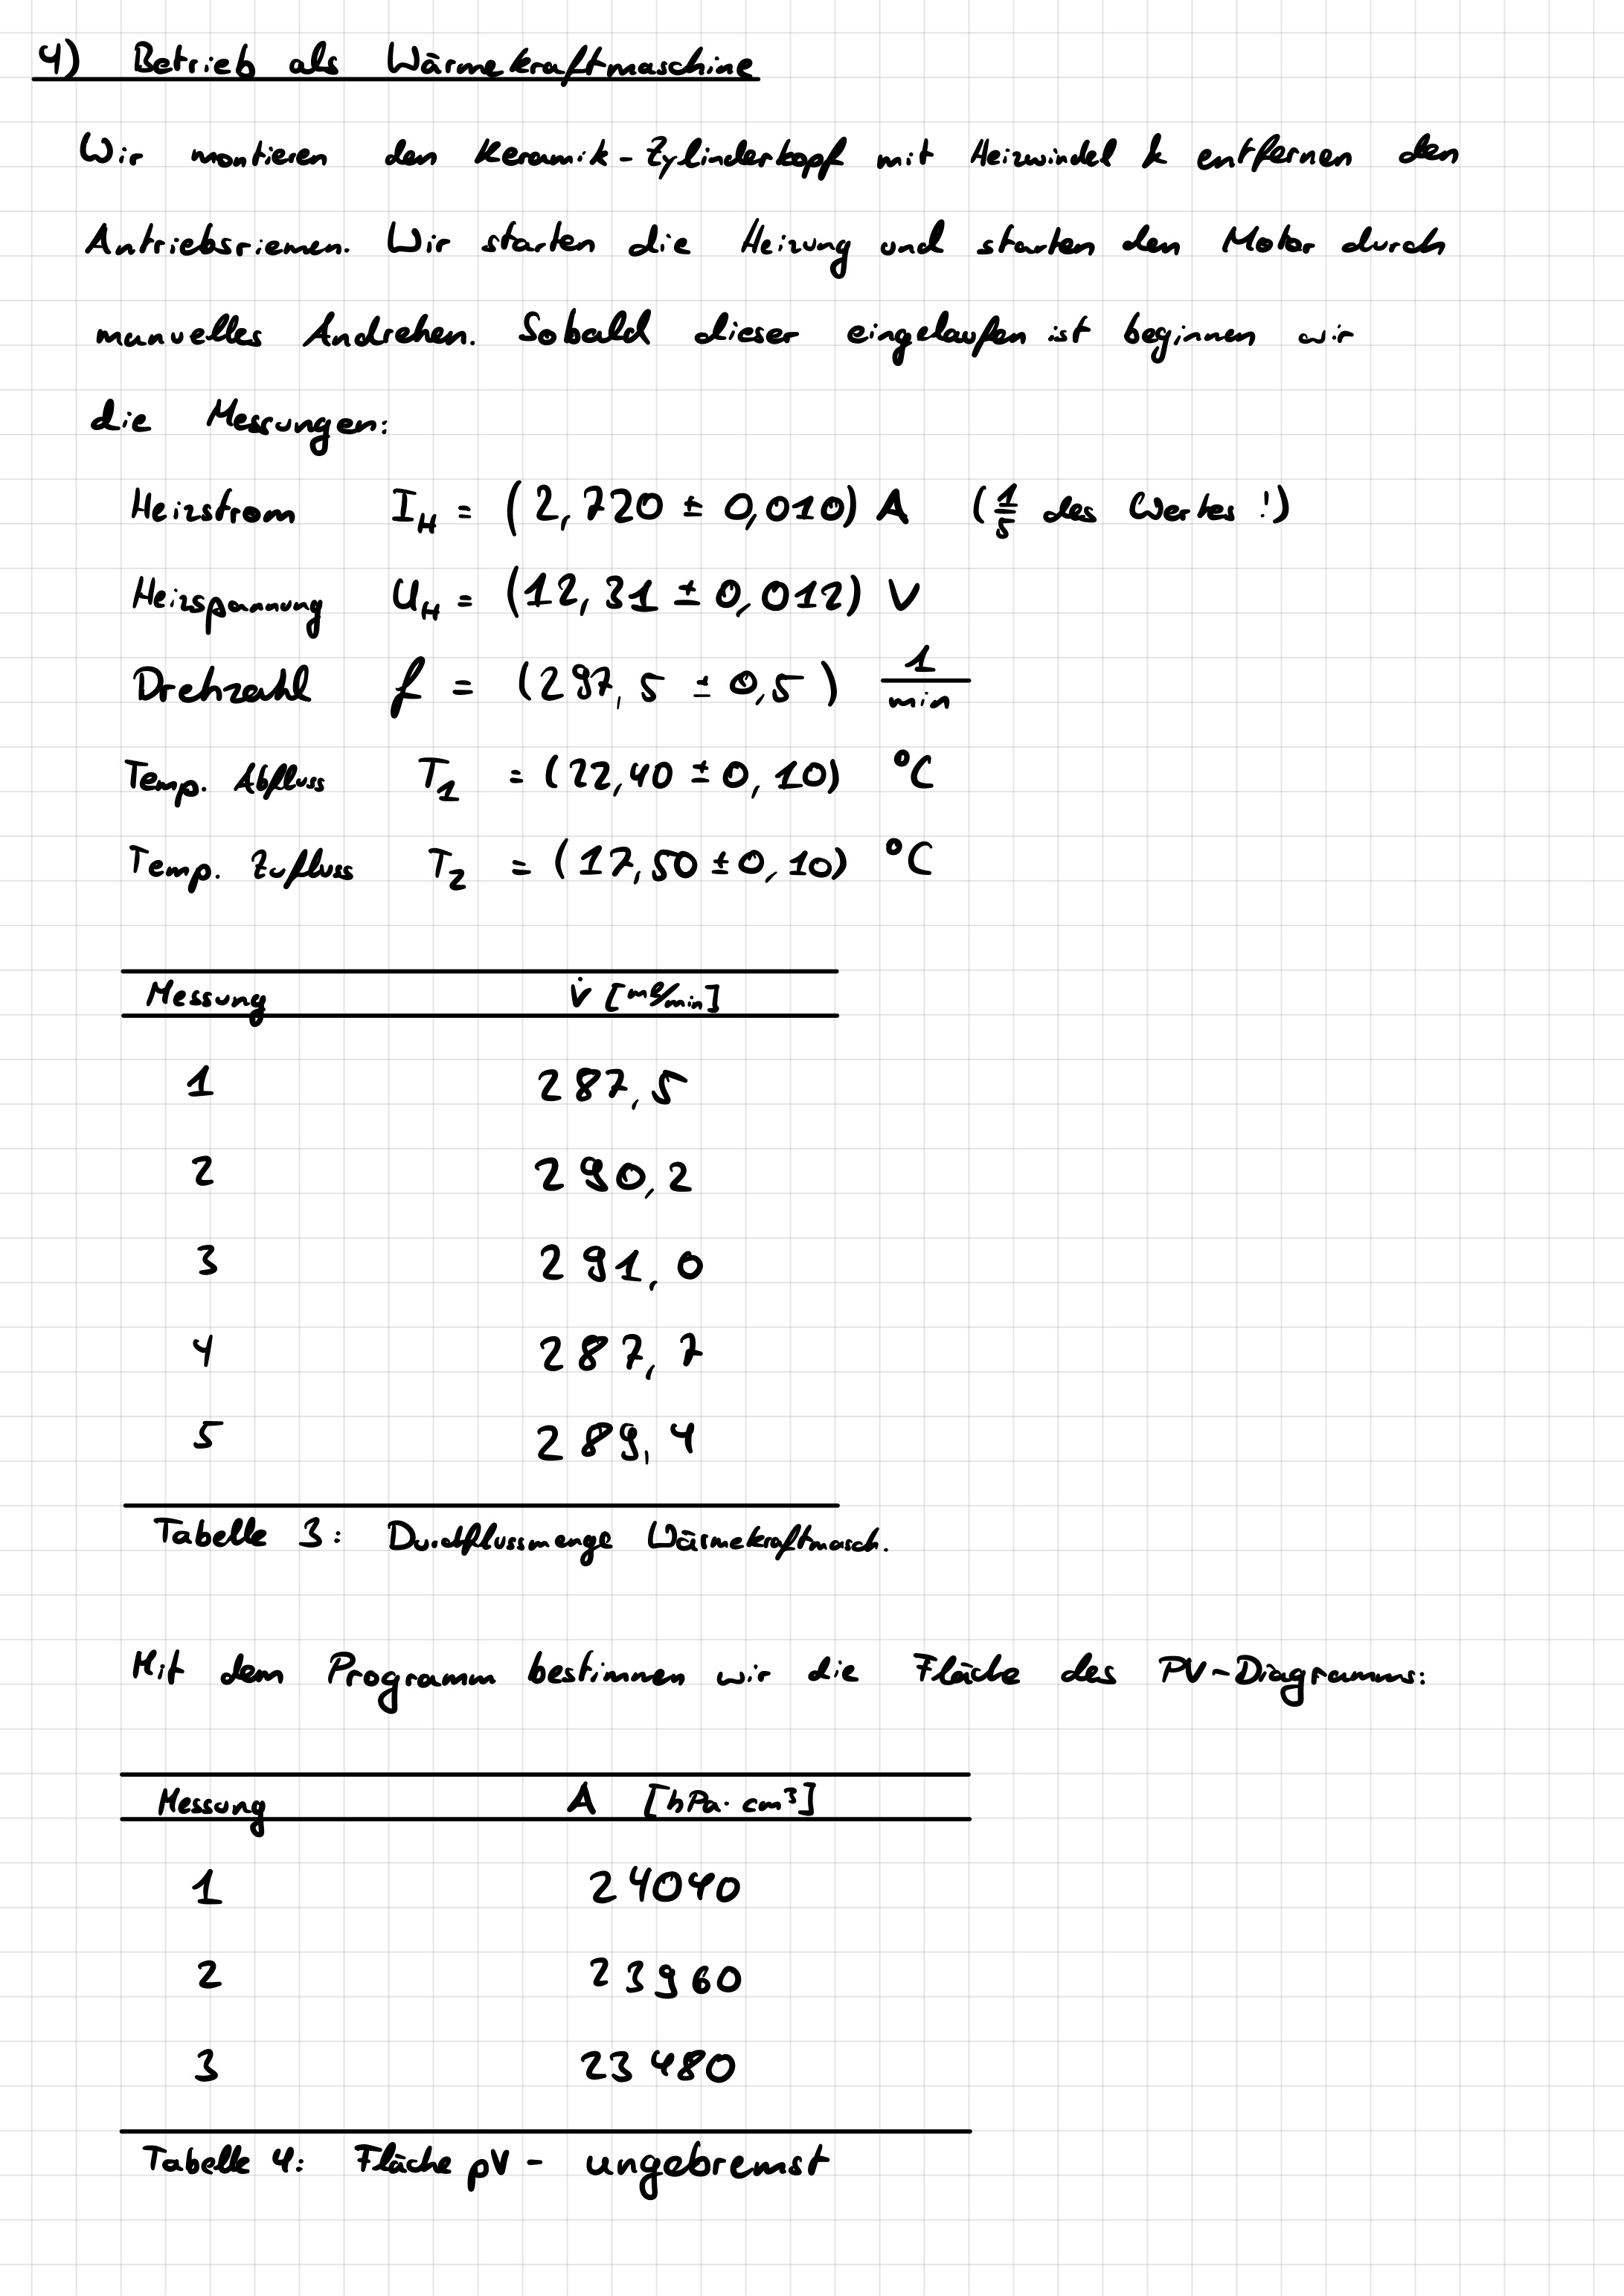 4) Betrieb als Wärmekraftmaschine
Wir montieren den Keramik-Zylinderkopf mit Heizwindel & entfernen den
Antriebsriemen. Wir starten die Heizung und starten den Motor durch
manuelles Andrehen. Sobald dieser eingelaufen ist beginnen wir
die Messungen:
Heizstrom I_H = (2,720 ± 0,010) A (1/5 des Wertes!)
Heizspannung U_H = (12,31 ± 0,012) V
Drehzahl f = (297,5 ± 0,5) 1/min
Temp. Abfluss T_1 = (22,40 ± 0,10) °C
Temp. Zufluss T_2 = (17,50 ± 0,10) °C
Messung V̇ [ml/min]
1 287,5
2 290,2
3 291,0
4 287,7
5 289,4
Tabelle 3: Durchflussmenge Wärmekraftmasch.
Mit dem Programm bestimmen wir die Fläche des PV-Diagramms:
Messung A [hPa·cm³]
1 24040
2 23960
3 23480
Tabelle 4: Fläche pV - ungebremst